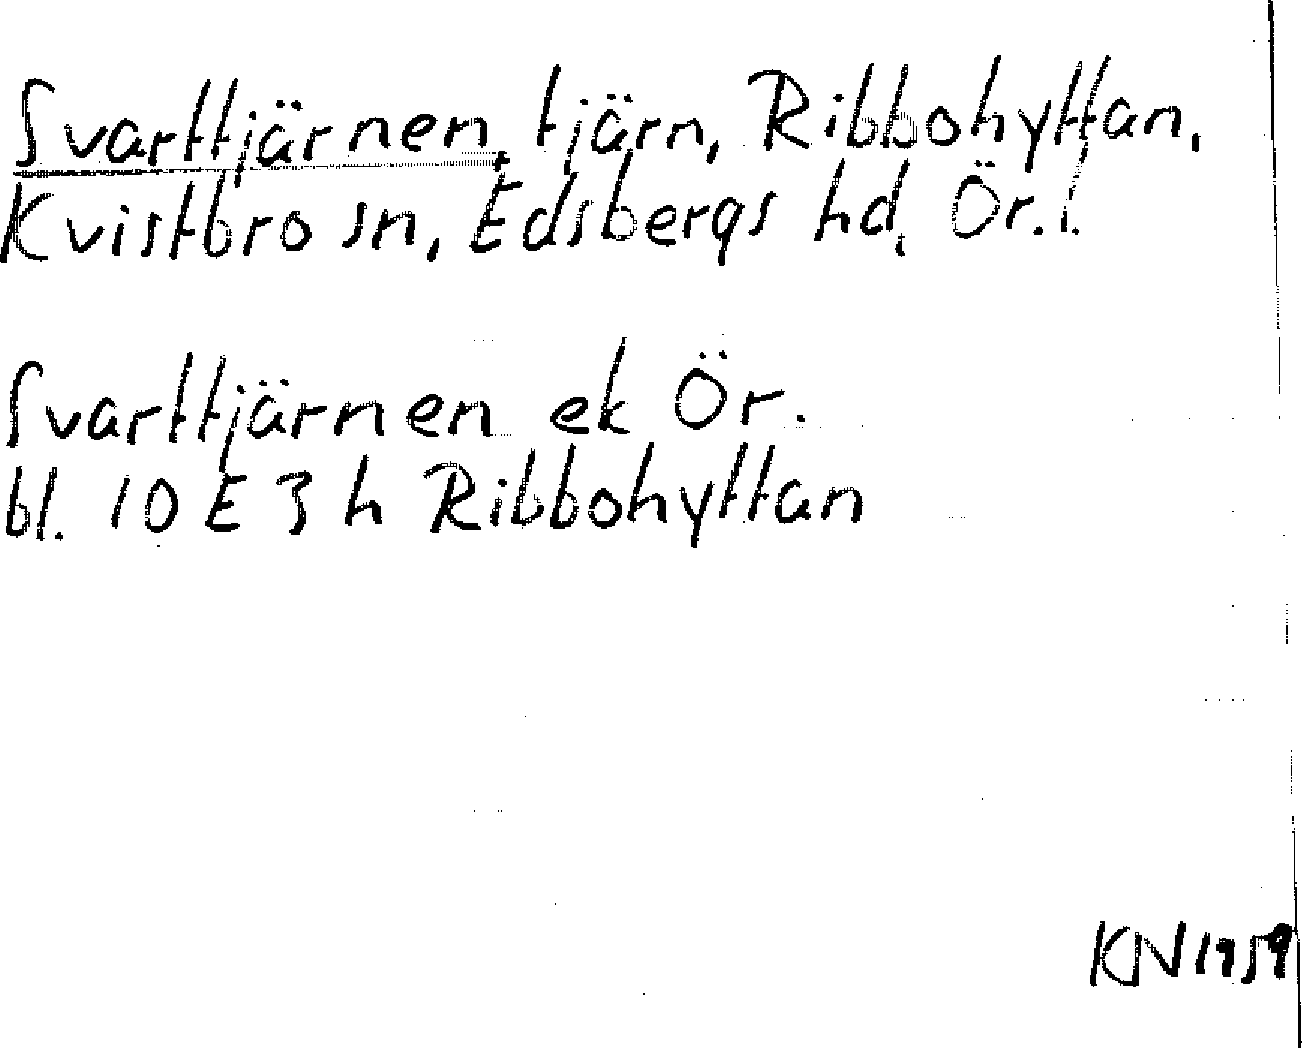 Svarttjärnen, tjärn, Ribbohyttan,
Kvistbro sn, Edsbergs hd, Ör.l.
Svarttjärnen ek Ör.
bl. 10 E 3 h Ribbohyttan
KN 1959